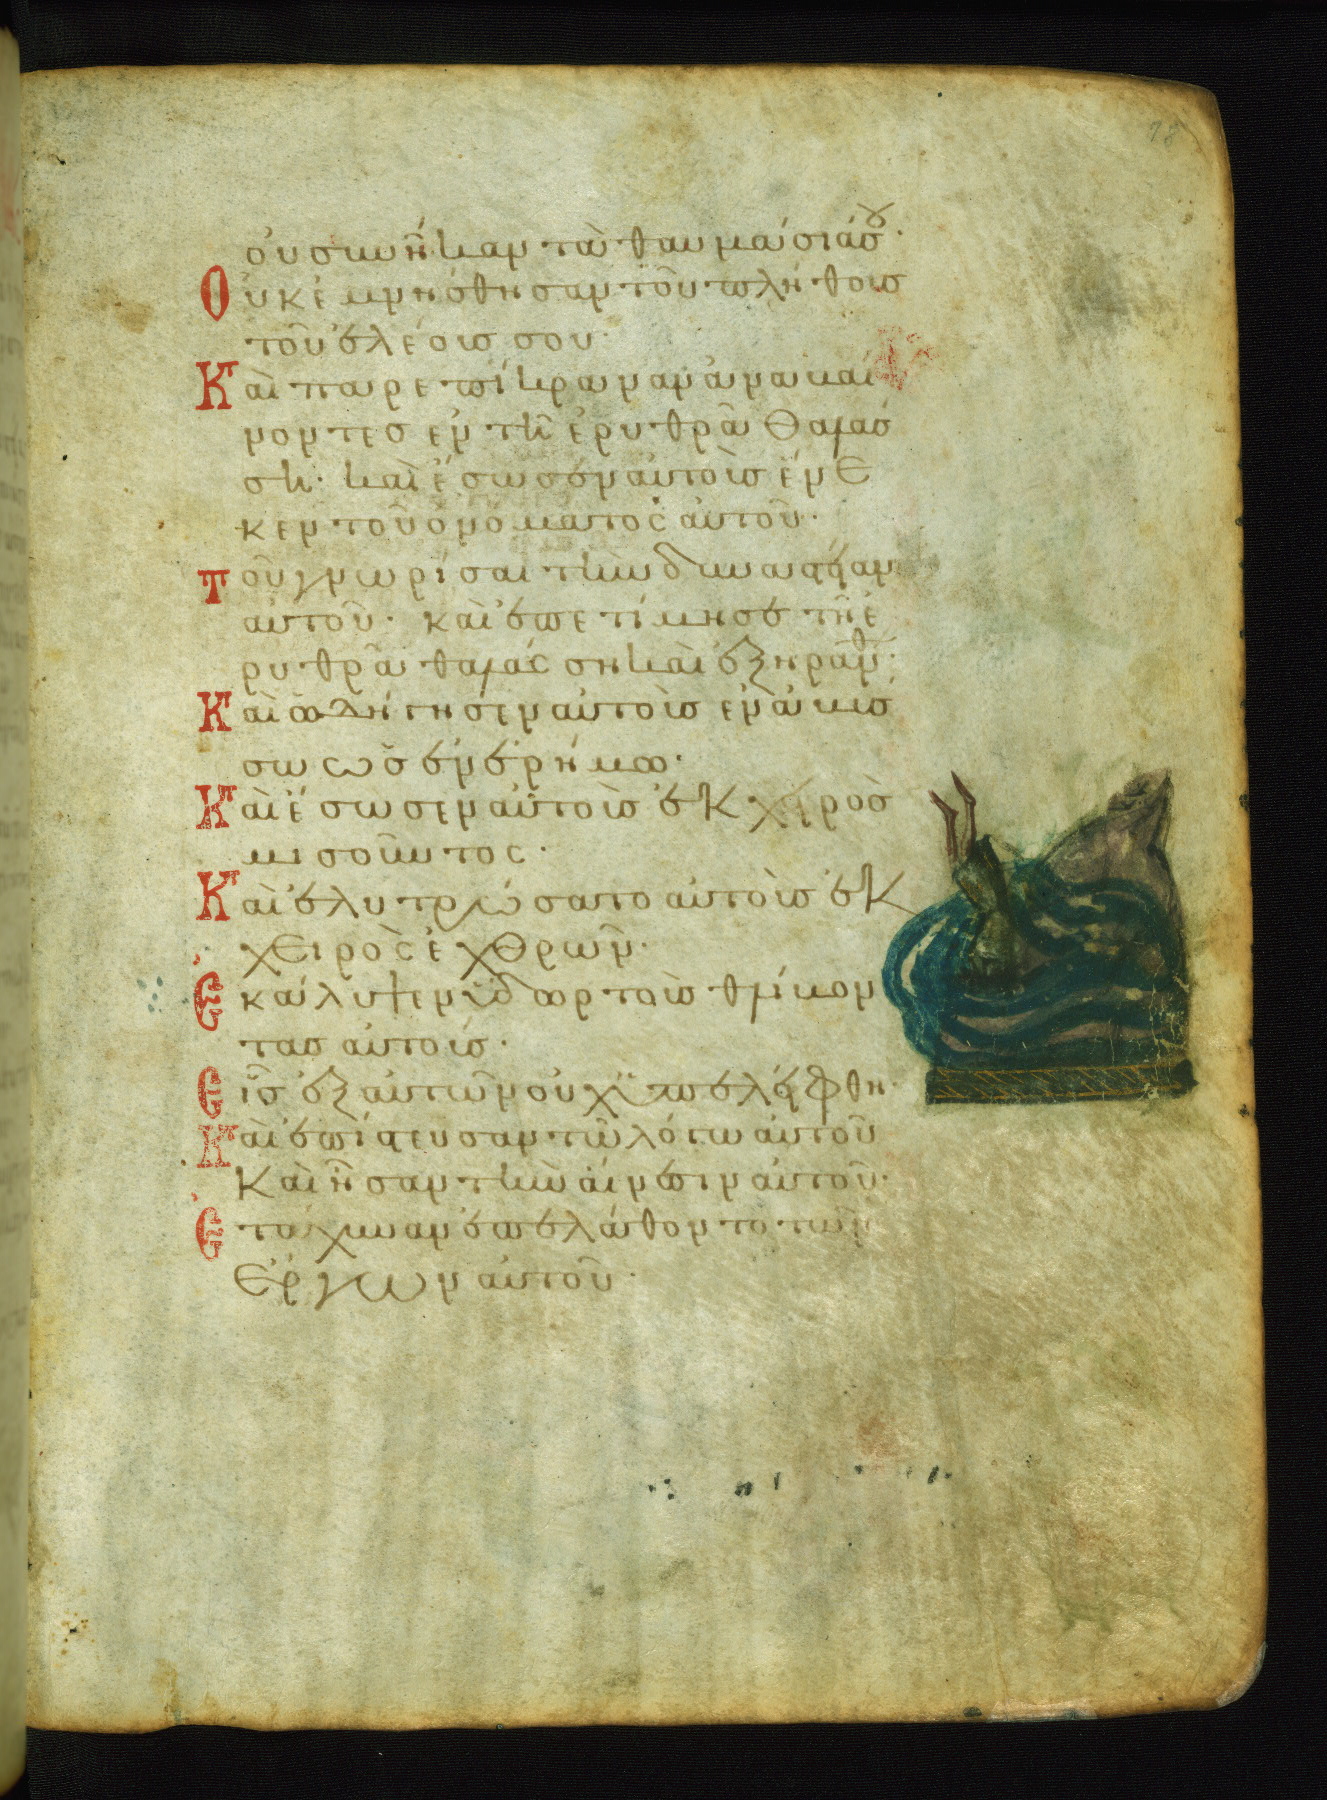 18
οὐ συνῆκαν τὰ θαυμάσιά σου·
Οὐκ ἐμνήσθησαν τοῦ πλήθοις
τοῦ ἐλέοις σου·
Καὶ παρεπίκραναν ἀναβαί
νοντες ἐν τῆ ἐρυθρᾶ θαλάσ
ση· καὶ ἔσωσεν αὐτοὶς ἕνε
κεν τοῦ ὀνόματος αὐτοῦ·
Τοῦ γνωρίσαι τὴν δυναστείαν
αὐτοῦ· καὶ ἐπετίμησε τῆ ἐ
ρυθρᾶ θαλάσση καὶ ἐξηράνθη·
Καὶ ὡδήγησεν αὐτοὶς ἐν ἀβύσ
σω ὡς ἐν ἐρήμω·
Καὶ ἔσωσεν αὐτοὶς ἐκ χειρὸς
μισοῦντος·
Καὶ ἐλυτρώσατο αὐτοὶς ἐκ
χειρὸς ἐχθρῶν·
Ἐκάλυψεν ὕδωρ τοὶς θλίβον
τας αὐτοίς·
Εἷς ἐξ αὐτῶν οὐχ ὑπελείφθη·
Καὶ ἐπίστευσαν τῶ λόγω αὐτοῦ
Καὶ ἦσαν τὴν αἴνεσιν αὐτοῦ·
Ἐτάχυναν ἐπελάθοντο τῶν
ἔργων αὐτοῦ·